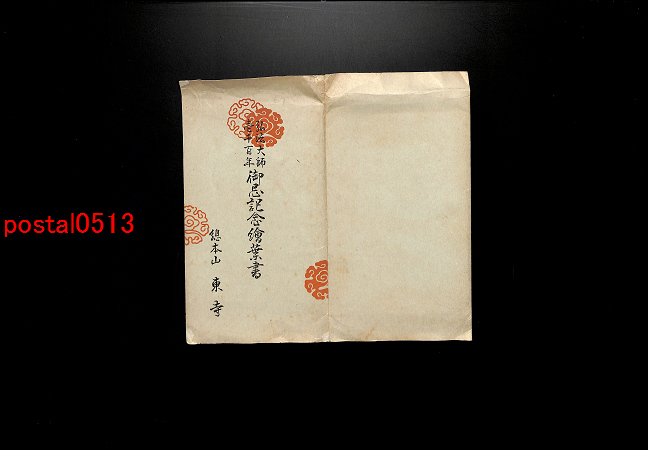 弘法大師
壹千百年
御忌記念繪葉書
總本山 東寺
postal0513